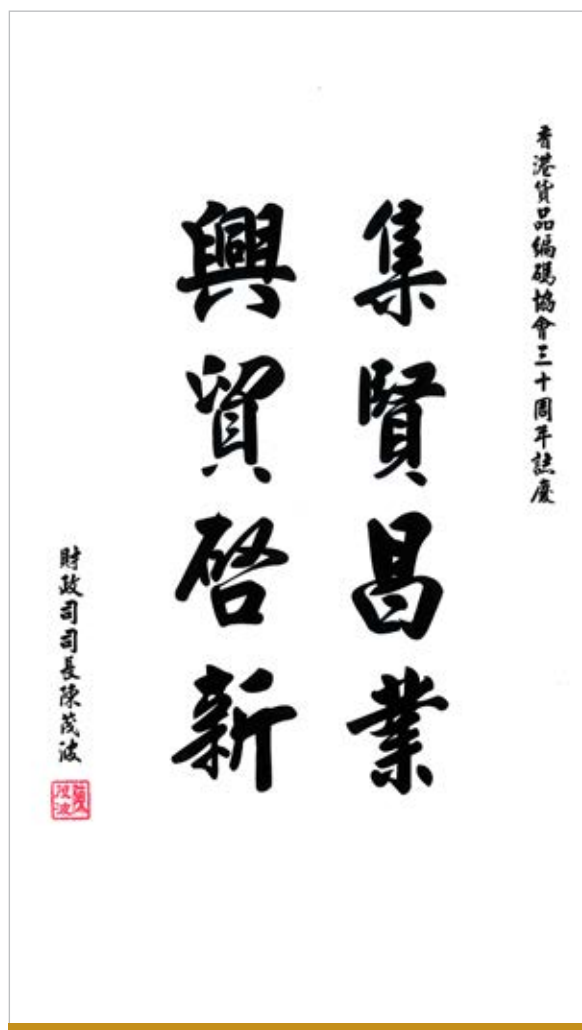 香港貨品編碼協會三十周年誌慶
集賢昌業
興貿啓新
財政司司長陳茂波